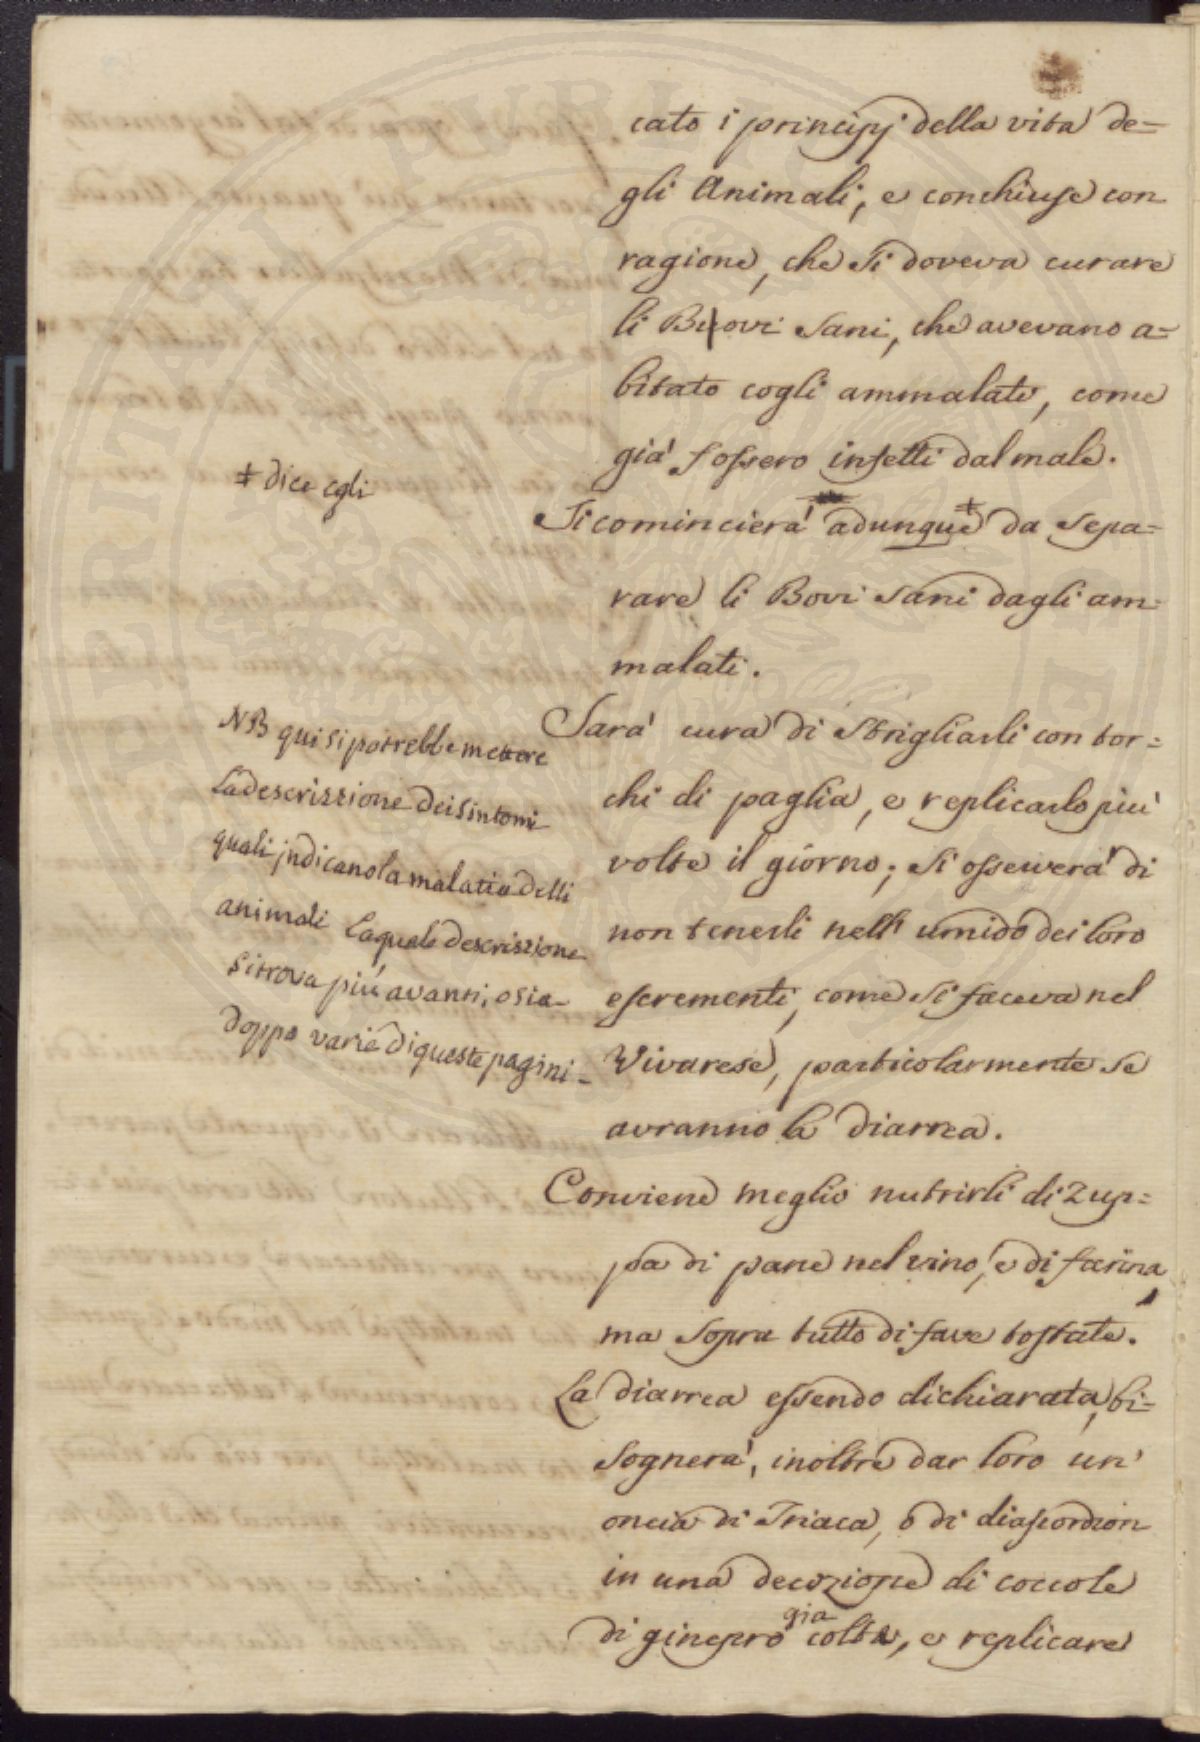 cato i principj della vita de=
gli Animali, e conchiuse con
ragione, che si doveva curare
li Buovi sani, che avevano a=
bitato cogli ammalati, come
già fossero infetti dal male.
‡ dice egli
Si comincierà adunque ‡ da sepa=
rare li Bovi sani dagli am=
malati.
NB qui si potrebbe mettere
la descrizione dei sintomi
quali jndicano la malatia delli
animali la quale descrizione
si trova più avanti, o sia
doppo varie di queste pagini-
Sarà cura di strigliarli con tor=
chi di paglia, e replicarlo più
volte il giorno; si osserverà di
non tenerli nell' umido dei loro
escrementi, come si faceva nel
Vivarese, particolarmente se
avranno la diarrea.
Conviene meglio nutrirli di zup=
pa di pane nel vino, e di farina,
ma sopra tutto di fave tostate.
La diarrea essendo dichiarata, bi=
sognerà, inoltre dar loro un'
oncia di Triaca, o di diascordion
in una decozione di coccole
di ginepro già colte, e replicare